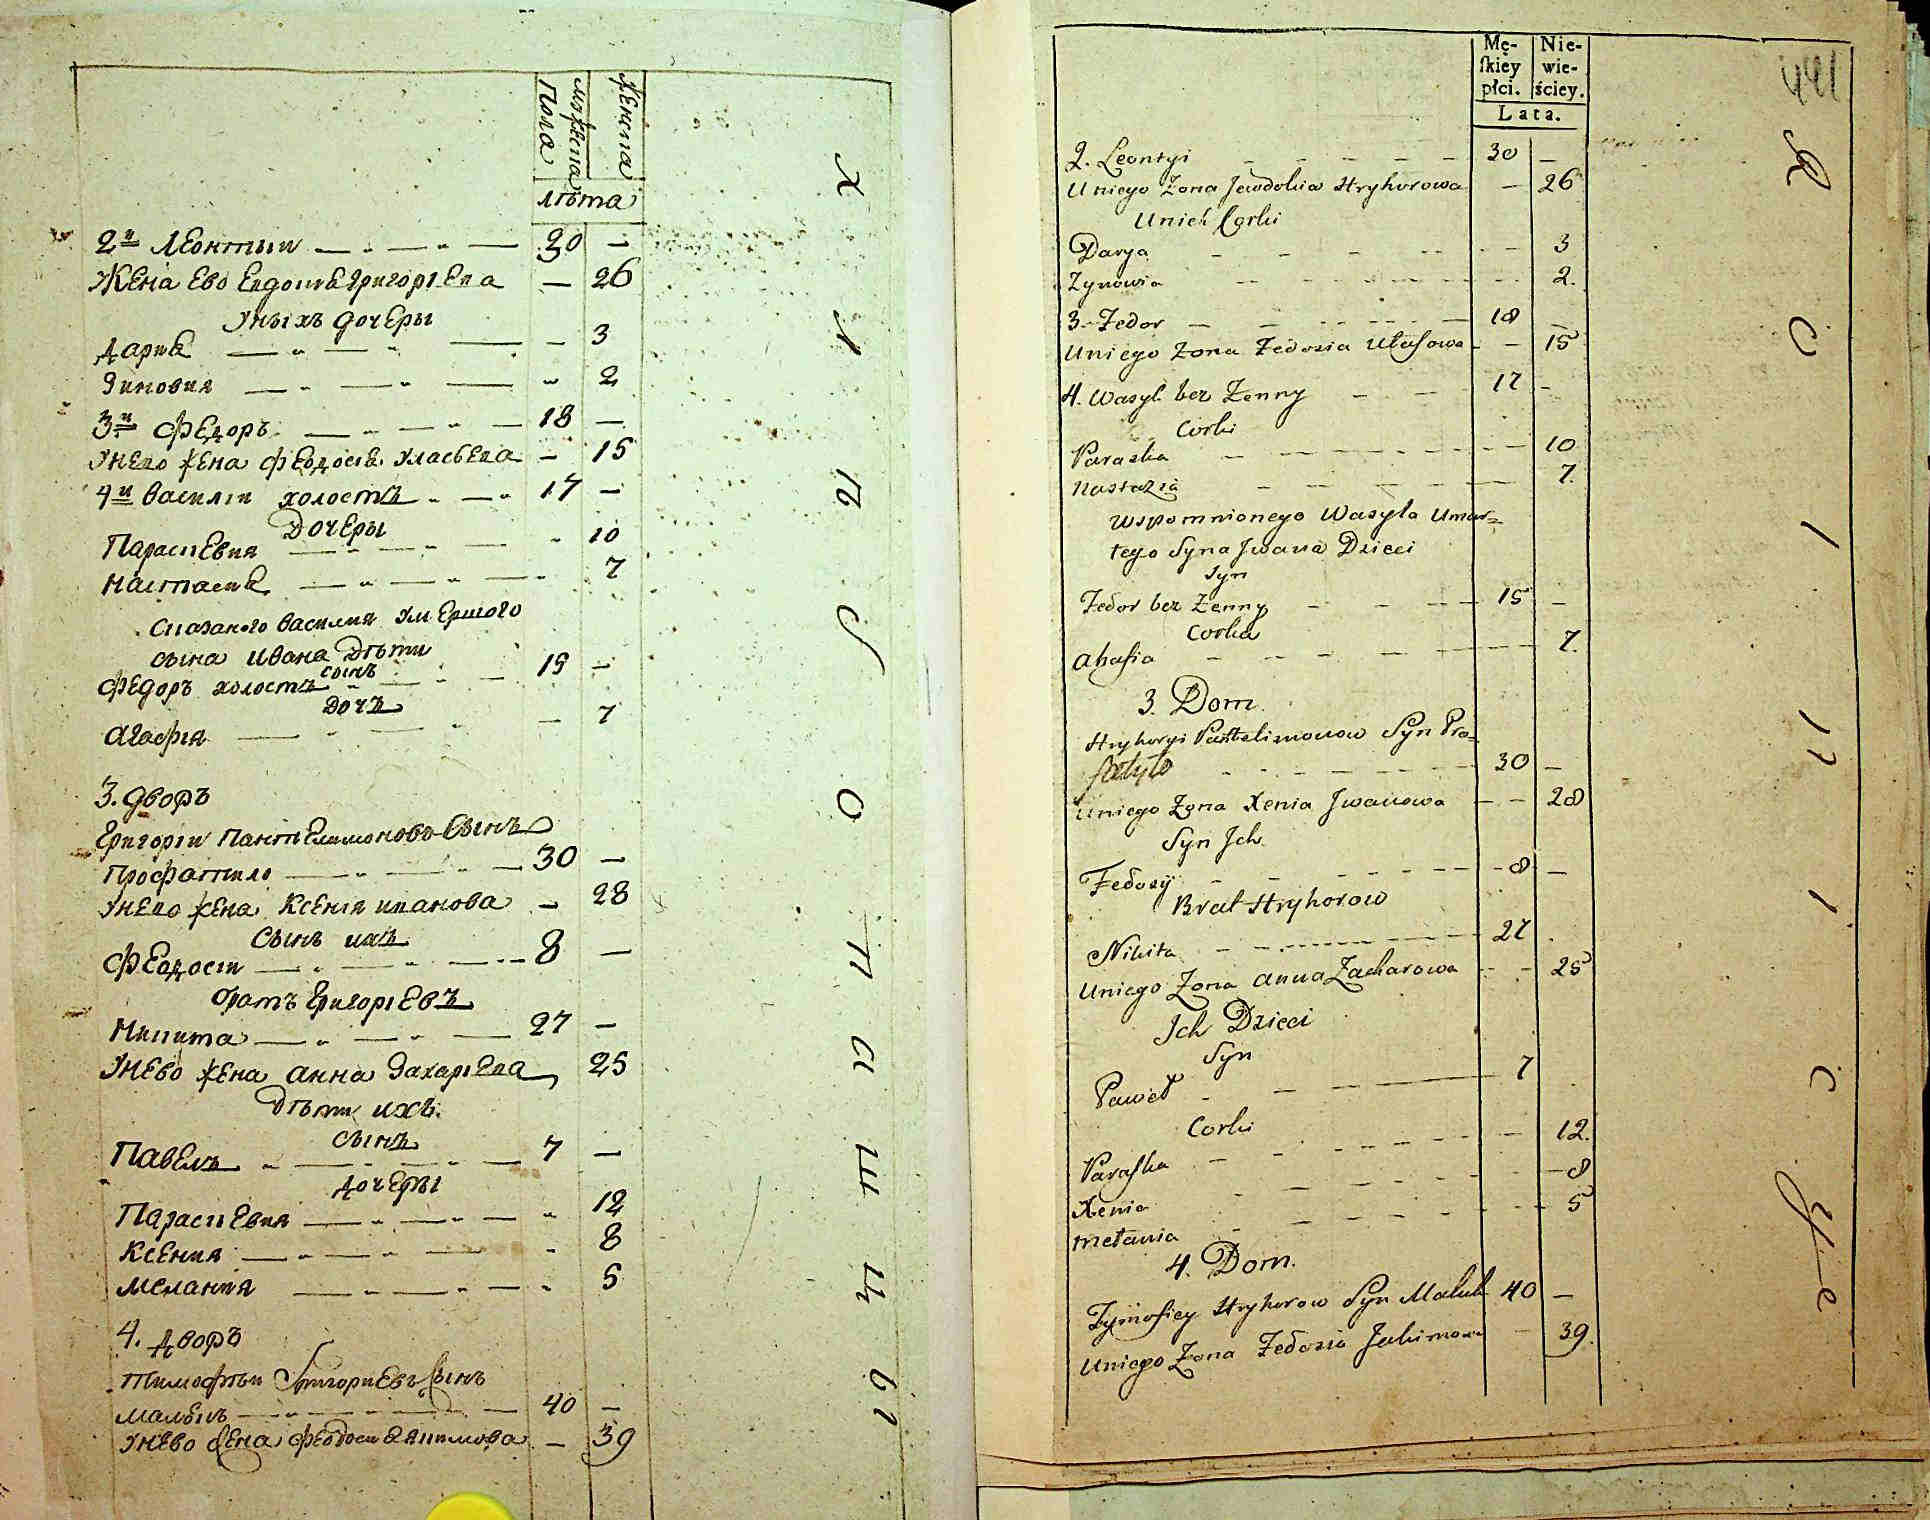 Пола
мужеска
Женска
лѣта
2й Леонтий 30 —
Жена Ево Евдокия Григориева — 26
Уныхъ дочеры
Дария — 3
Зиновия 2
3й Федоръ 18 —
Унево жена Феодосия Уласьева — 15
4й Василий холостъ 17 —
Дочеры
Параскевия 10
Настасия 7
Сказаного Василия Умершого
сына Ивана Дѣти
сынъ
Федоръ холостъ 15 —
дочь
Агафия — 7
3. дворъ
Григорий Пантелимоновъ Сынъ
Профатило 30 —
Унево жена Ксения Иванова — 28
Сынъ ихъ
Феодосий 8 —
братъ Григориевъ
Никита 27 —
Унево жена Анна Захариева 25
Дѣти ихъ
сынъ
Павелъ 7 —
дочеры
Параскевия 12
Ксения 8
Мелания 5
4. дворъ
Тимофѣй Григориевъ Сынъ
Малыкъ 40 —
Унево жена Феодосия Якимова — 39
Х
Л
О
П
Ы
441
Mę-
skiey
płci.
Nie-
wie-
ściey.
Lata.
2. Leontyi 30 —
Uniego Zona Jewdokia Hryhorowa — 26
Unich Corki
Darya 3
Zynowia 2.
3. Fedor 18 —
Uniego Zona Fedosia Ułasowa — 15
4. Wasyl bez Zenny 17 —
Corki
Paraska 10
Nastazia 7.
Wspomnionego Wasyla Umar=
tego Syna Jwana Dzieci
Syn
Fedor bez Zenny 15 —
Corka
Ahafia 7.
3. Dom.
Hryhoryi Pantelimonow Syn Pro=
fatyło 30 —
Uniego Zona Xenia Jwanowa — 28
Syn Jch
Fedosÿ 8 —
Brat Hryhorow
Nikita 27
Uniego Zona Anna Zacharowa — 25
Jch Dzieci
Syn
Paweł 7
Corki
Paraska 12.
Xenia 8
Melania 5
4. Dom.
Tymofiey Hryhorow Syn Maluk 40 —
Uniego Zona Fedosia Jakimowa — 39.